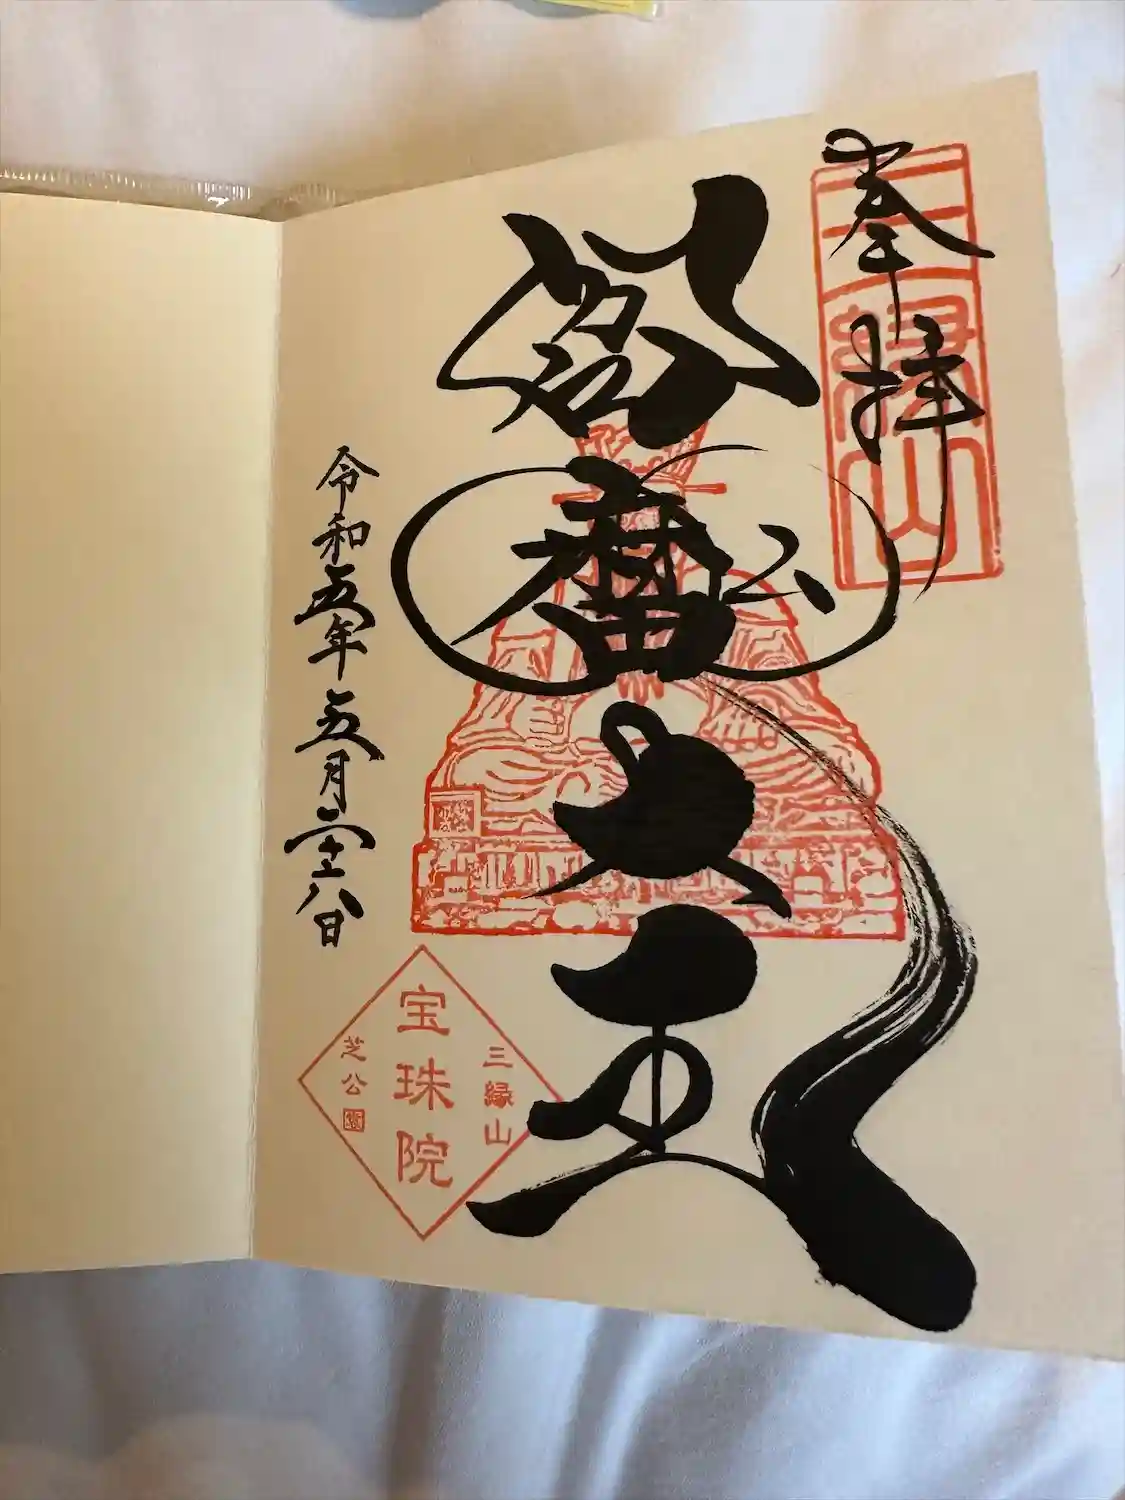 奉拝
三縁山
閻魔大王
令和五年五月二十八日
三縁山
宝珠院
芝公園